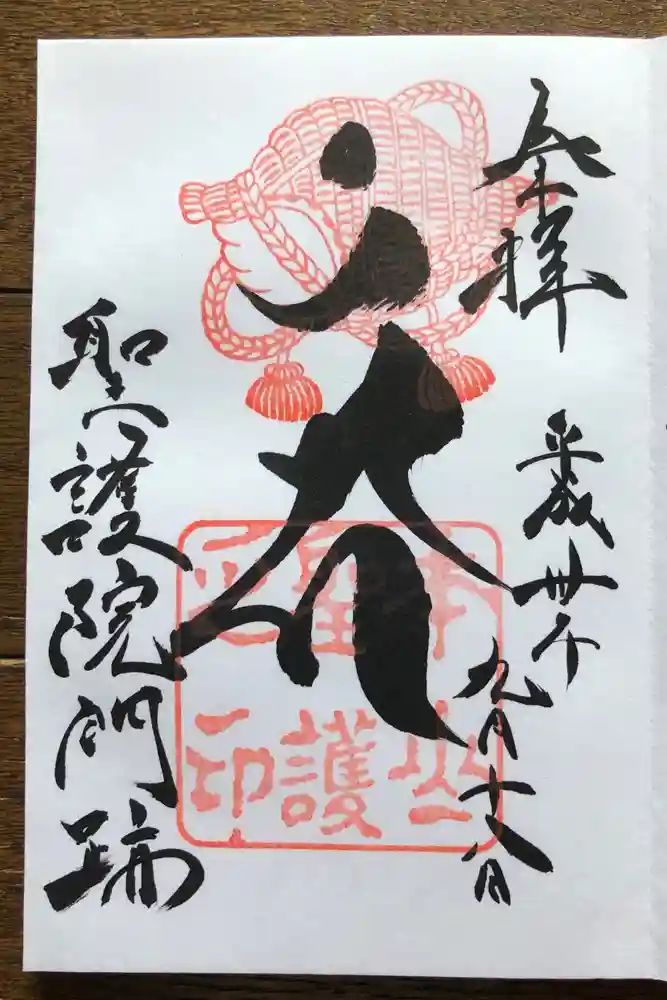 奉拝
平成卅年
九月十八日
本山
聖護
印
聖護院門跡